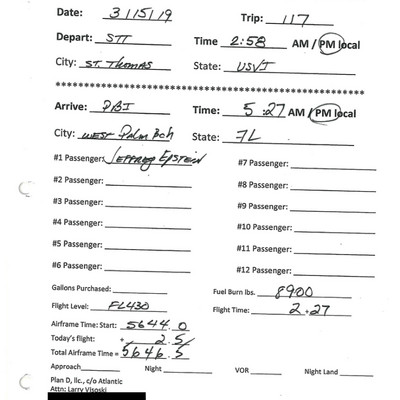 Date: 3/15/19 Trip: 117
Depart: STT Time 2:58 AM / PM local
City: ST. Thomas State: USVI
**************************************************
Arrive: PBI Time: 5:27 AM / PM local
City: West Palm Bch State: FL
#1 Passenger: Jeffrey Epstein #7 Passenger:
#2 Passenger: #8 Passenger:
#3 Passenger: #9 Passenger:
#4 Passenger: #10 Passenger:
#5 Passenger: #11 Passenger:
#6 Passenger: #12 Passenger:
Gallons Purchased: Fuel Burn lbs. 8900
Flight Level: FL430 Flight Time: 2.27
Airframe Time: Start: 5644.0
Today's flight: + 2.5
Total Airframe Time = 5646.5
Approach Night VOR Night Land
Plan D, llc., c/o Atlantic
Attn: Larry Visoski